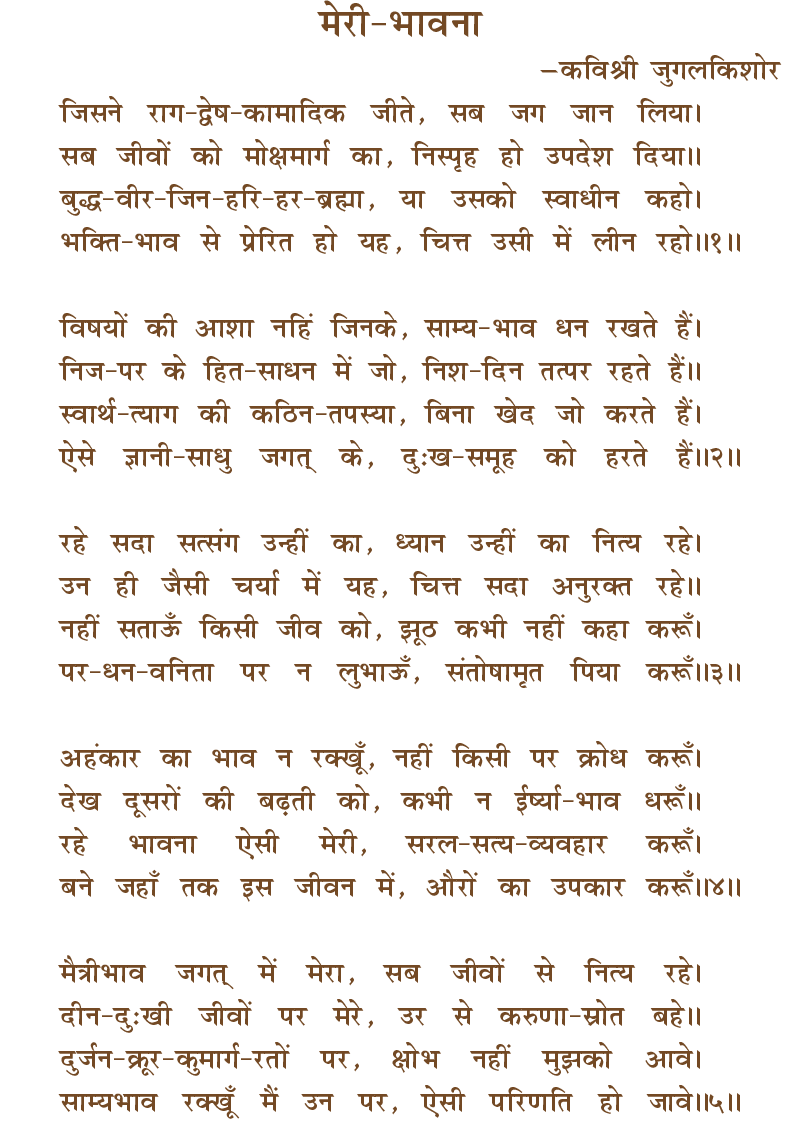 मेरी-भावना
–कविश्री जुगलकिशोर
जिसने राग-द्वेष-कामादिक जीते, सब जग जान लिया।
सब जीवों को मोक्षमार्ग का, निस्पृह हो उपदेश दिया॥
बुद्ध-वीर-जिन-हरि-हर-ब्रह्मा, या उसको स्वाधीन कहो।
भक्ति-भाव से प्रेरित हो यह, चित्त उसी में लीन रहो॥१॥
विषयों की आशा नहिं जिनके, साम्य-भाव धन रखते हैं।
निज-पर के हित-साधन में जो, निश-दिन तत्पर रहते हैं॥
स्वार्थ-त्याग की कठिन-तपस्या, बिना खेद जो करते हैं।
ऐसे ज्ञानी-साधु जगत् के, दुःख-समूह को हरते हैं॥२॥
रहे सदा सत्संग उन्हीं का, ध्यान उन्हीं का नित्य रहे।
उन ही जैसी चर्या में यह, चित्त सदा अनुरक्त रहे॥
नहीं सताऊँ किसी जीव को, झूठ कभी नहीं कहा करूँ।
पर-धन-वनिता पर न लुभाऊँ, संतोषामृत पिया करूँ॥३॥
अहंकार का भाव न रक्खूँ, नहीं किसी पर क्रोध करूँ।
देख दूसरों की बढ़ती को, कभी न ईर्ष्या-भाव धरूँ॥
रहे भावना ऐसी मेरी, सरल-सत्य-व्यवहार करूँ।
बने जहाँ तक इस जीवन में, औरों का उपकार करूँ॥४॥
मैत्रीभाव जगत् में मेरा, सब जीवों से नित्य रहे।
दीन-दुःखी जीवों पर मेरे, उर से करुणा-स्रोत बहे॥
दुर्जन-क्रूर-कुमार्ग-रतों पर, क्षोभ नहीं मुझको आवे।
साम्यभाव रक्खूँ मैं उन पर, ऐसी परिणति हो जावे॥५॥